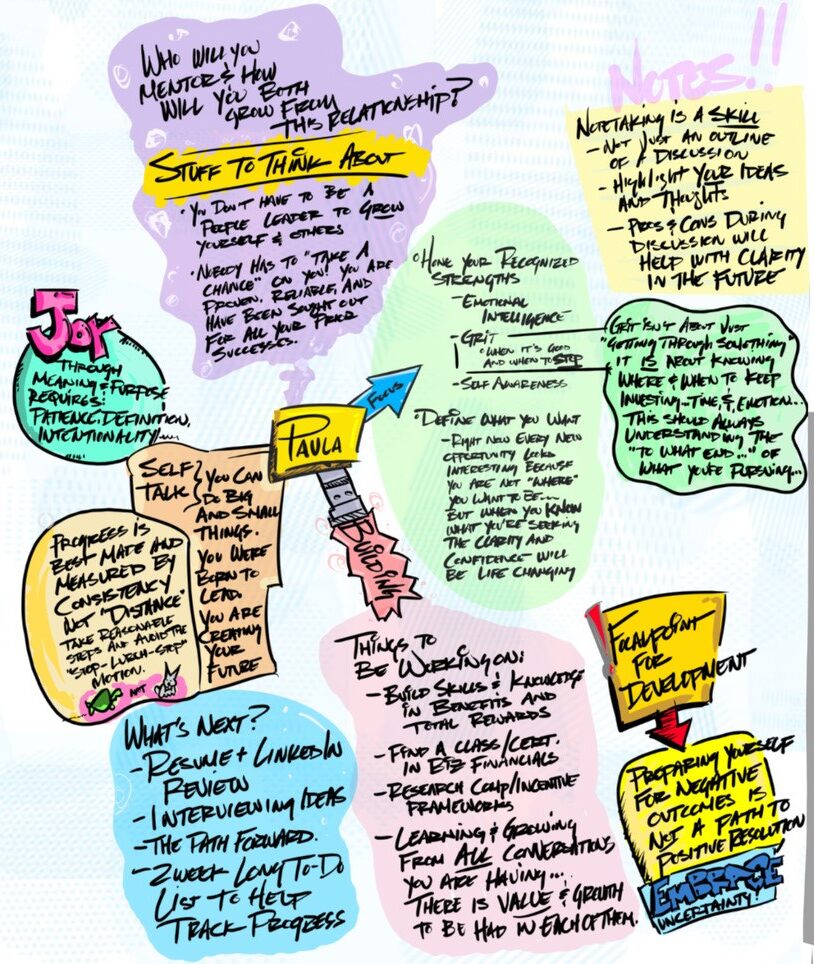 WHO WILL YOU
MENTOR & HOW
WILL YOU BOTH
GROW FROM
THIS RELATIONSHIP?
STUFF TO THINK ABOUT
• YOU DON'T HAVE TO BE A
PEOPLE LEADER TO GROW
YOURSELF & OTHERS
• NOBODY HAS TO "TAKE A
CHANCE" ON YOU! YOU ARE
PROVEN, RELIABLE, AND
HAVE BEEN SOUGHT OUT
FOR ALL YOUR PRIOR
SUCCESSES.
NOTES!!
NOTETAKING IS A SKILL
- NOT JUST AN OUTLINE
OF A DISCUSSION
- HIGHLIGHT YOUR IDEAS
AND THOUGHTS
- PROS & CONS DURING
DISCUSSION WILL
HELP WITH CLARITY
IN THE FUTURE
JOY
THROUGH
MEANING & PURPOSE
REQUIRES:
PATIENCE, DEFINITION,
INTENTIONALITY....
PAULA
FOCUS
• HONE YOUR RECOGNIZED
STRENGTHS
- EMOTIONAL
INTELLIGENCE
- GRIT
• WHEN IT'S GOOD
AND WHEN TO STOP
- SELF AWARENESS
• DEFINE WHAT YOU WANT
- RIGHT NOW EVERY NEW
OPPORTUNITY LOOKS
INTERESTING BECAUSE
YOU ARE NOT "WHERE"
YOU WANT TO BE...
BUT WHEN YOU KNOW
WHAT YOU'RE SEEKING
THE CLARITY AND
CONFIDENCE WILL
BE LIFE CHANGING
GRIT ISN'T ABOUT JUST
"GETTING THROUGH SOMETHING"
IT IS ABOUT KNOWING
WHERE & WHEN TO KEEP
INVESTING - TIME, & EMOTION...
THIS SHOULD ALWAYS
UNDERSTANDING THE
"TO WHAT END..." OF
WHAT YOU'RE PURSUING...
SELF
TALK
YOU CAN
DO BIG
AND SMALL
THINGS.
YOU WERE
BORN TO
LEAD.
YOU ARE
CREATING
YOUR
FUTURE
PROGRESS IS
BEST MATE AND
MEASURED BY
CONSISTENCY
NOT "DISTANCE"
TAKE REASONABLE
STEPS AND AVOID THE
"STOP-LURCH-STOP"
MOTION.
NOT
BUILDING
THINGS TO
BE WORKING ON:
- BUILD SKILLS & KNOWLEDGE
IN BENEFITS AND
TOTAL REWARDS
- FIND A CLASS/CERT.
IN BIZ FINANCIALS
- RESEARCH COMP/INCENTIVE
FRAMEWORKS
- LEARNING & GROWING
FROM ALL CONVERSATIONS
YOU ARE HAVING...
THERE IS VALUE & GROWTH
TO BE HAD IN EACH OF THEM.
WHAT'S NEXT?
- RESUME + LINKEDIN
REVIEW
- INTERVIEWING IDEAS
- THE PATH FORWARD.
- 2 WEEK LONG TO-DO
LIST TO HELP
TRACK PROGRESS
FOCALPOINT
FOR
DEVELOPMENT
PREPARING YOURSELF
FOR NEGATIVE
OUTCOMES IS
NOT A PATH TO
POSITIVE RESOLUTION
EMBRACE
UNCERTAINTY!